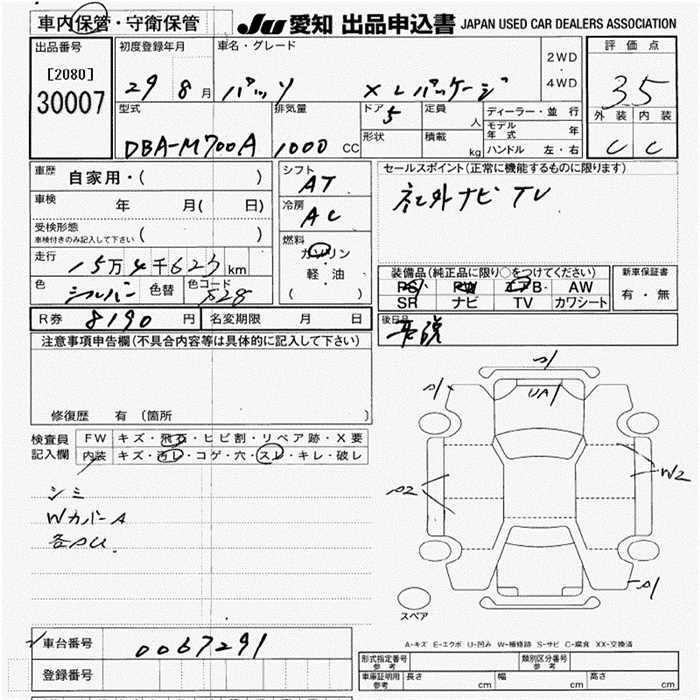 車内保管・守衛保管
JU 愛知 出品申込書 JAPAN USED CAR DEALERS ASSOCIATION
出品番号
[2080]
30007
初度登録年月
29 8 月
車名・グレード
パッソ X Lパッケージ
2WD
・
4WD
評価点
3.5
外装 内装
C C
型式
DBA-M700A
排気量
1000 CC
ドア 5
形状
定員 人
積載 kg
ディーラー・並行
モデル年式 年
ハンドル 左・右
車歴
自家用・( )
車検
年 月( 日)
受検形態
車検付きのみ記入して下さい
( )
走行
15万4千625km
色 シルバー 色替 色コード S28
シフト
AT
冷房
AC
燃料
ガソリン
軽・油
( )
セールスポイント(正常に機能するものに限ります)
社外ナビ TV
装備品(純正品に限り○をつけてください)
PS PW エアB AW
SR ナビ TV カワシート
新車保証書
有・無
R券 8190 円 名変期限 月 日
後日品
取説
注意事項申告欄(不具合内容等は具体的に記入して下さい)
修復歴 有(箇所 )
検査員
記入欄
FW キズ・飛石・ヒビ割・リペア跡・X要
内装 キズ・汚レ・コゲ・穴・スレ・キレ・破レ
シミ
WカバーA
各AU
A1
A1
UA1
A2
W2
A1
スペア
A-キズ E-エクボ U-凹み W-補修跡 S-サビ C-腐食 XX-交換済
車台番号
0067291
登録番号
形式指定番号
参考
類別区分番号
参考
車庫証明用
参考
長さ cm 幅 cm 高さ cm